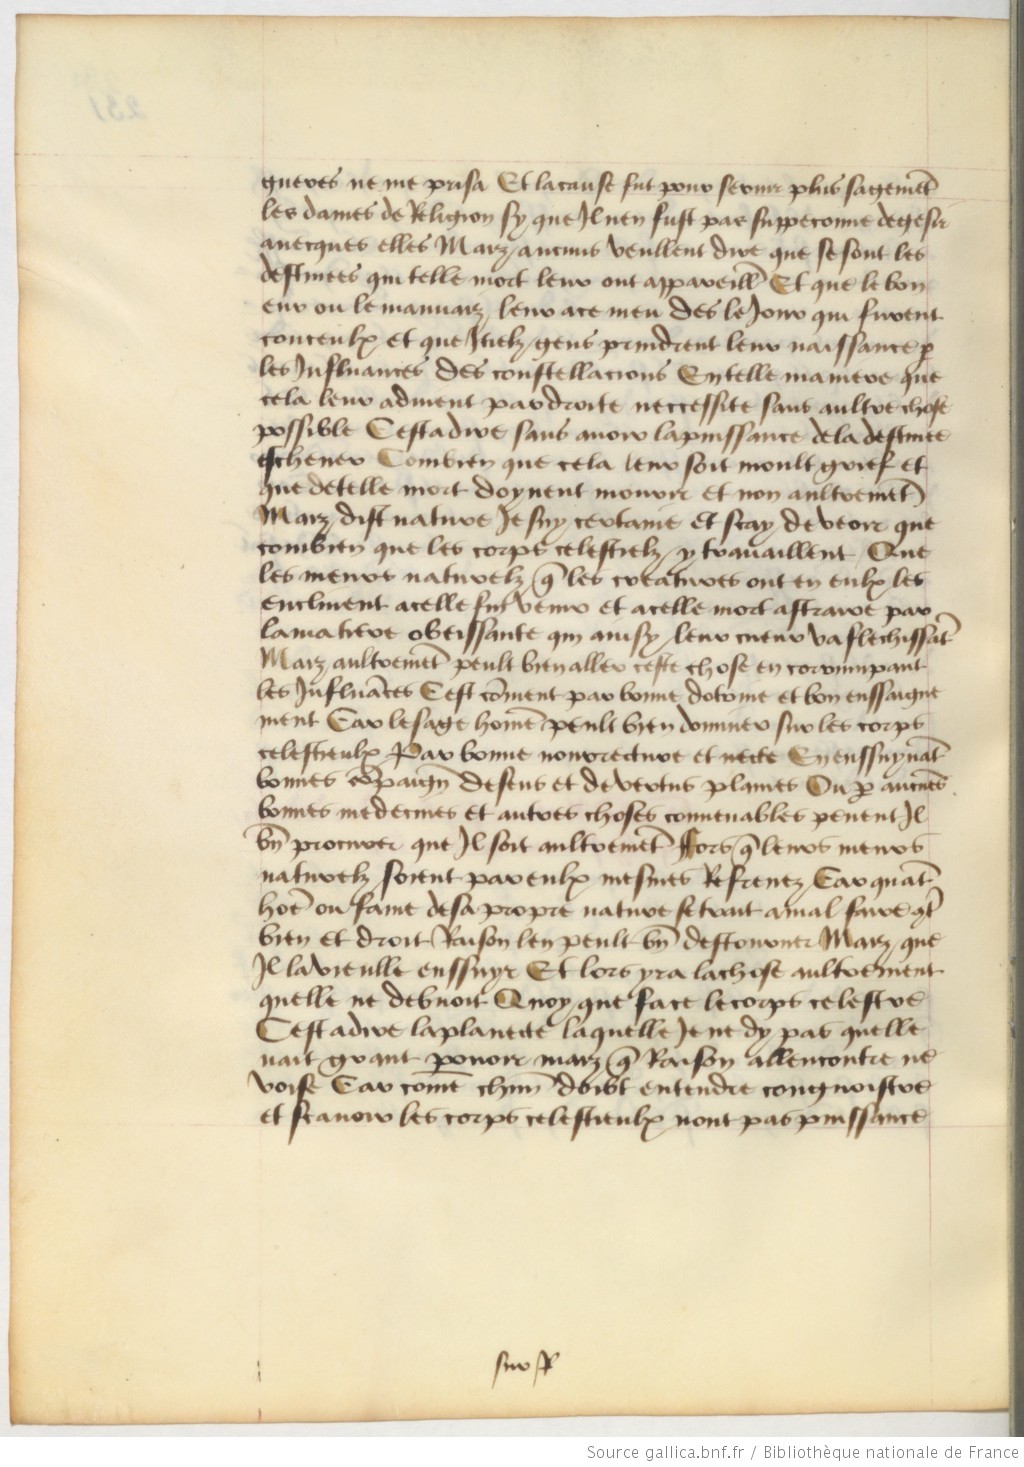 gueres ne me prisa Et la cause fut pour seruir plus sagemēt
les dames de Religion sy que Il nen fust pas suppeconne de gesir
auecques elles Marz aucuns veullent dire que se sont les
destinees qui telle mort leur ont appareillē Et que le bon
eur ou le mauuarz leur ace meu des le Jour qui furent
conceulx et que Jtielz gens prindrent leur naissance p
les Influances des constellacions En telle maniere que
cela leur aduient par droite neccessite sans aultre chose
possible Cest adire sans auoir la puissance de la destinee
eschener Combien que cela leur soit moult grief et
que de telle mort doyuent mourir et non aultremēt
Marz dist nature Je suy certaine et scay de veoir que
combien que les corps celestielz y trauaillent Que
les meurs naturelz q̄ les creatures ont en eulx les
enclinent acelle fin venir et acelle mort astraire par
la matiere obeissante qui ainsy leur cueur va flechissāt
Marz aultremēt peult bien aller ceste chose en corrumpant
les Influāces Cest cōment par bonne dotrine et bon enssaigne
ment Car le sage homē peult bien dominer sur les corps
celestieulx Par bonne nourreture et necte En enssuyuāt
bonnes cōpaign̄ de sens et de vertus plaines Ou p aucunēs
bonnes medecines et autres choses conuenables peuent Il
bn̄ procurer que Il soit aultremēt Fors q̄ leurs meurs
naturelz soient par eulx mesmes Refrenez Car quāt
hoē ou fame de sa propre nature se trait amal faire 9t̄
bien et droit Raison len peult bn̄ destourner Marz que
Il la vieulle enssuyr Et lors yra la chose aultrement
quelle ne debuoit Quoy que face le corps celestre
Cest adire la planecte laquelle Je ne dy pas quelle
nait grant pouoir marz q̄ Raison allencontre ne
voise Car comē chun̄ doibt entendre congnoistre
et scauoir les corps celestieulx nont pas puissance
sur
Source gallica.bnf.fr / Bibliothèque nationale de France